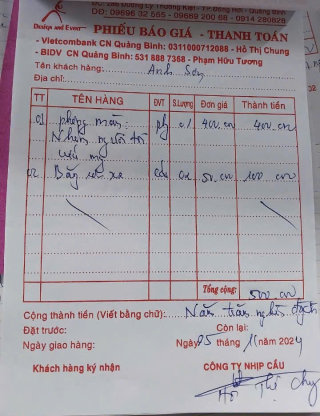 ĐC: 266 Đường Lý Thường Kiệt - TP. Đồng Hới - Quảng Bình
DĐ: 09896 32 555 - 09669 200 68 - 0914 280829
Design and Event
PHIẾU BÁO GIÁ - THANH TOÁN
- Vietcombank CN Quảng Bình: 0311000712088 - Hồ Thị Chung
- BIDV CN Quảng Bình: 531 888 7368 - Phạm Hữu Tương
Tên khách hàng: Anh Sơn
Địa chỉ:
TT TÊN HÀNG ĐVT S.Lượng Đơn giá Thành tiền
01 phông màn 01 400.000 400.000
Nhân người tới
02 Băng xe 50.000 100.000
Tổng cộng: 500.000
Cộng thành tiền (Viết bằng chữ): Năm trăm nghìn đồng
Đặt trước: Còn lại:
Ngày giao hàng: Ngày 05 tháng 11 năm 2024
Khách hàng ký nhận CÔNG TY NHỊP CẦU
Hồ Thị